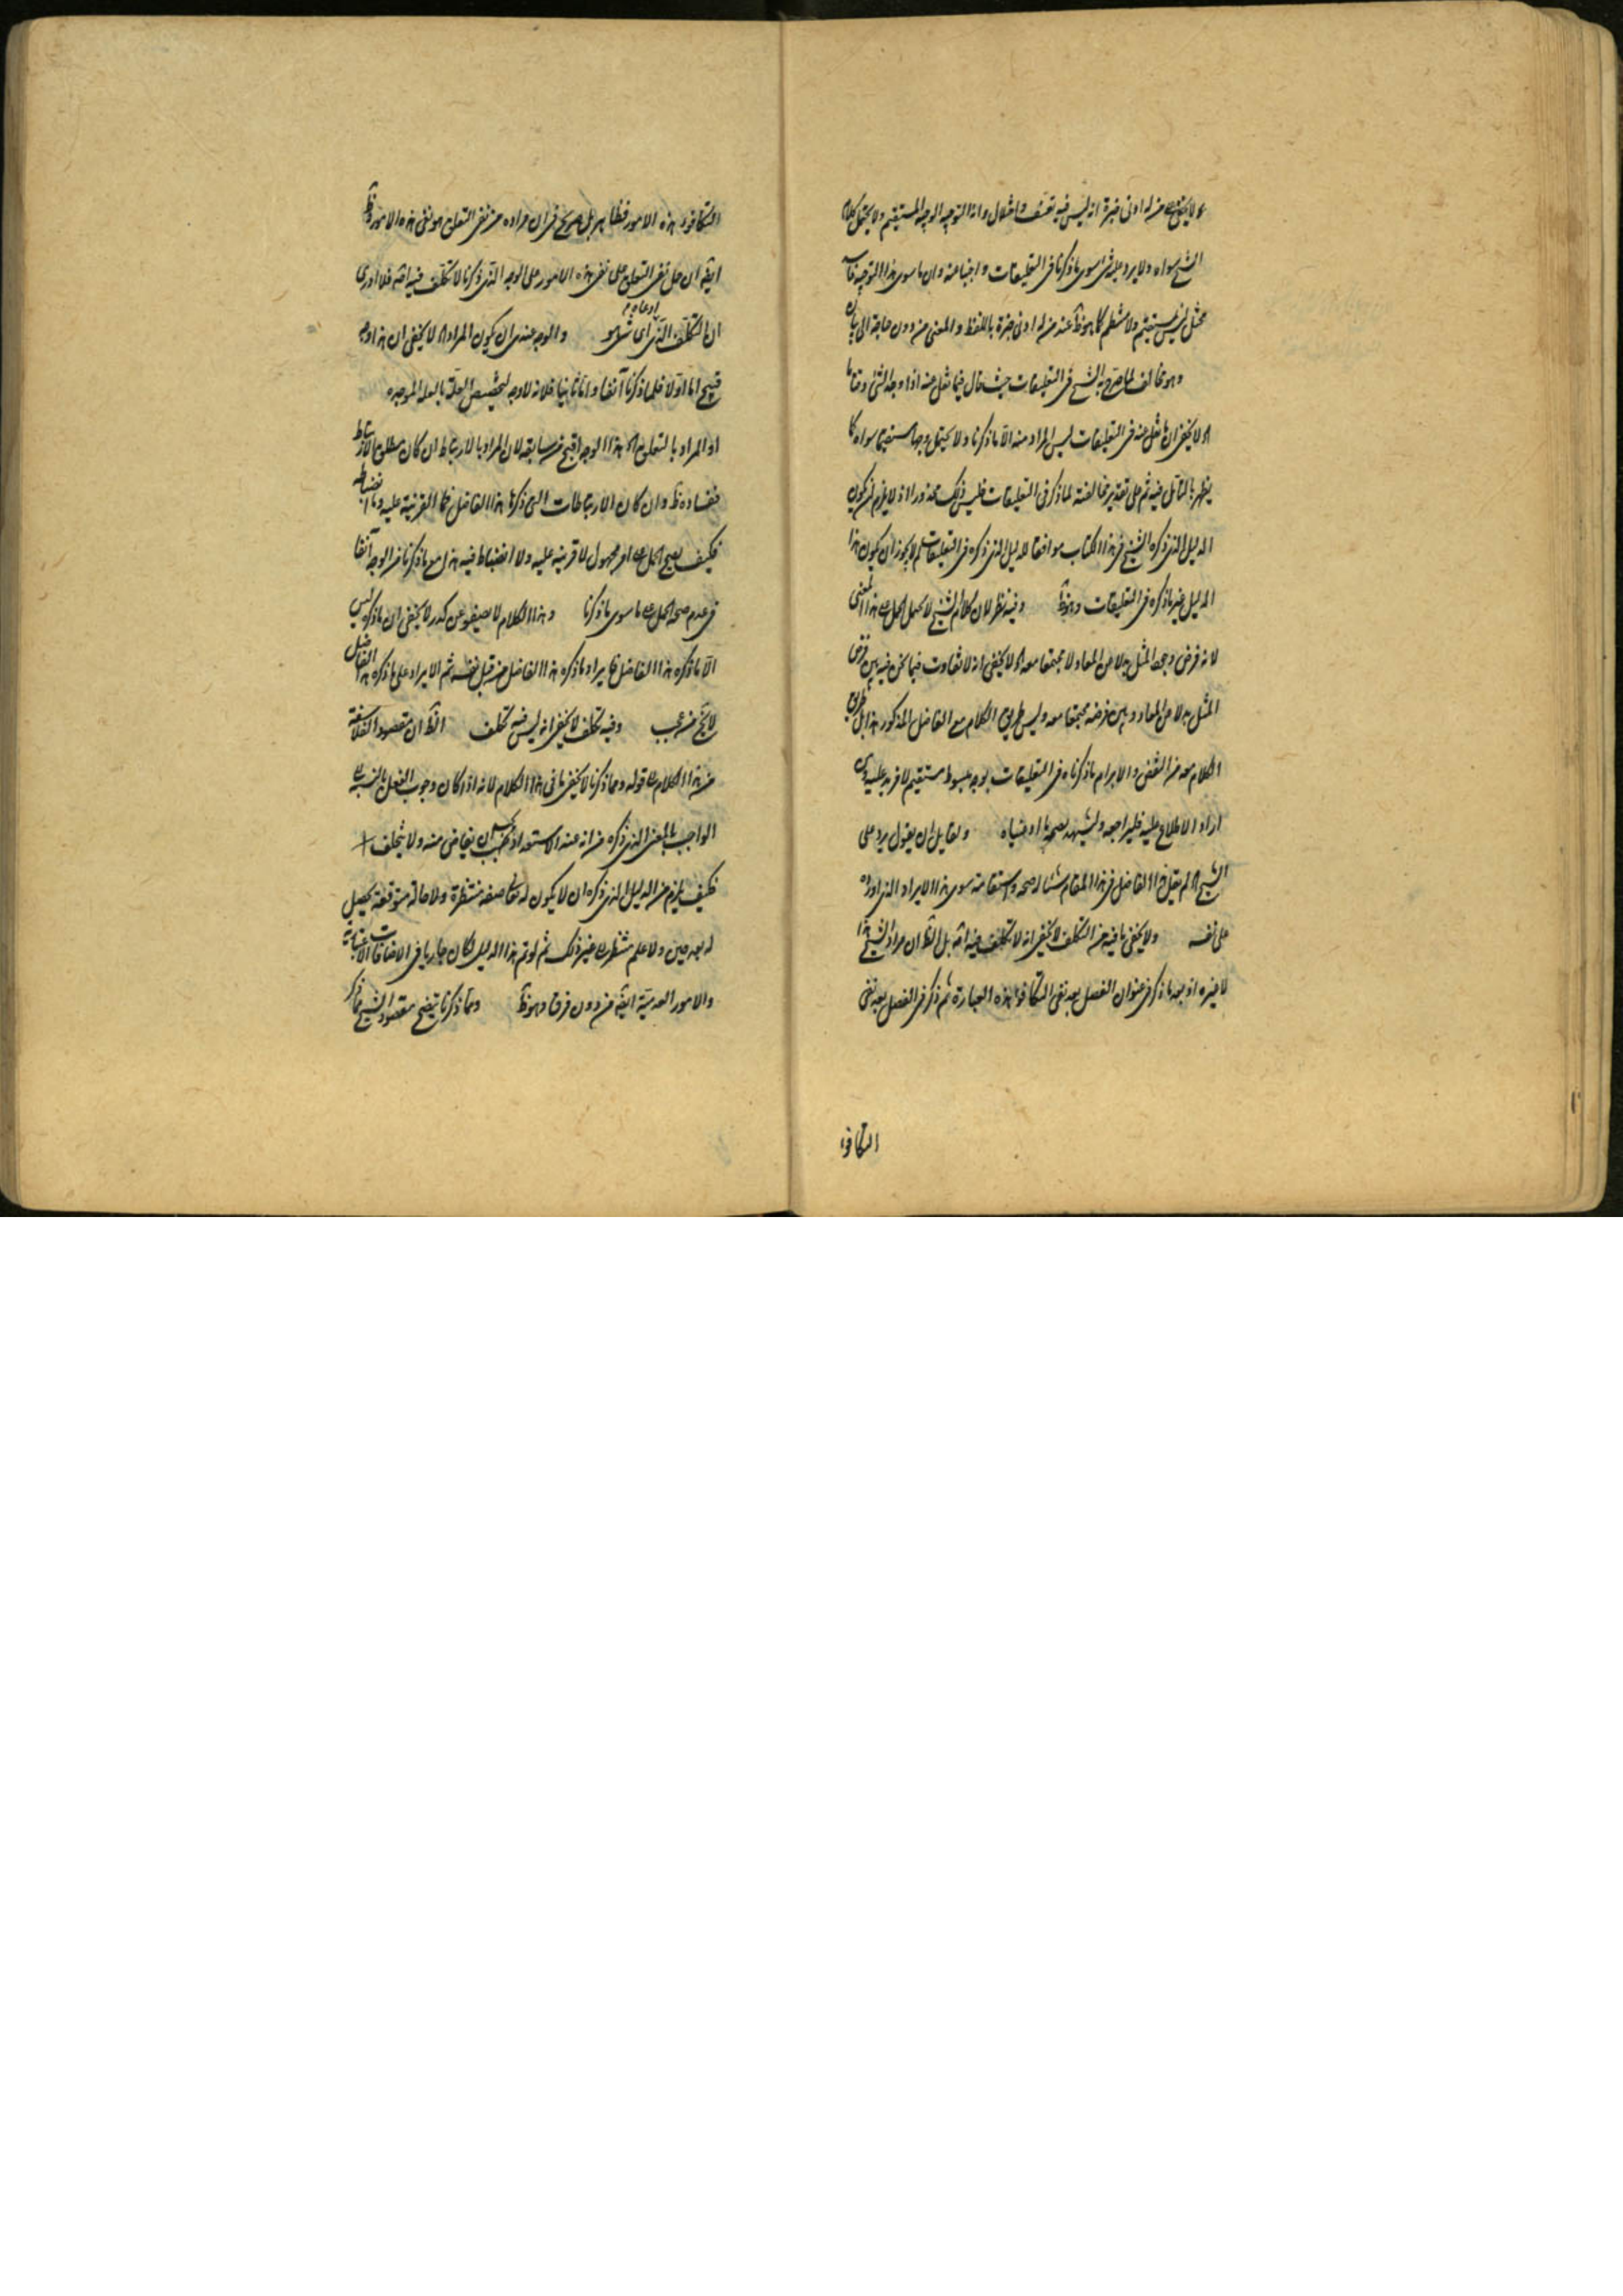 لا يخفى على من له ادنى خبرة انه ليس فيه تعسف واختلال وانه التوجيه الوجيه المستقيم ولا يحتمل كلام
الشيخ سواه ولا يرد عليه شئ سوى ما ذكرنا في التعليقات واجبنا عنه وان ما سوى هذا التوجيه
مختل ليس بمستقيم ولا منتظم كما هو ظ عند من له ادنى خبرة باللفظ والمعنى من دون حاجة الى بيان
وهو مخالف لما صرح به الشيخ في التعليقات حيث قال فيما نقل عنه اذا وجد الشئ وقتا ما
لا يخفى ان ما نقل عنه في التعليقات ليس المراد منه الا ما ذكرنا ولا يحتمل وجها مستقيما سواه كما
يظهر بالتأمل فيه ثم على تقدير مخالفته لما ذكر في التعليقات فليس ذلك محذورا اذ لا يلزم ان يكون
الدليل الذي ذكره الشيخ في هذا الكتاب موافقا للدليل الذي ذكره في التعليقات لم لا يجوز ان يكون هذا
الدليل غير ما ذكره في التعليقات وهو ظ وفيه نظر لان كلام الشيخ لا يحتمل الحمل على هذا المعنى
لانه فرض وجود المثل بدلا من المعاد ولا مجتمعا معه لا يخفى انه لا تفاوت فيما نحن فيه بين فرض
المثل بدلا من المعاد وبين فرضه مجتمعا معه وليس طريق الكلام مع الفاضل المذكور هذا بل طريق
الكلام معه من النقض والابرام ما ذكرناه في التعليقات بوجه مبسوط مستقيم لا مزيد عليه ومن
اراد الاطلاع عليه فليراجعه وليشهد بصحة ما ادعيناه ولقايل ان يقول يرد على
الشيخ لم يقل هذا الفاضل في هذا المقام شيئا له صحة واستقامة سوى هذا الايراد الذي اورده
على نفسه ولا يخفى ما فيه من التكلف لا يخفى انه لا تكلف فيه اصلا بل الظ ان مراد الشيخ هذا
لا غيره اذ بعد ما ذكر في عنوان الفصل بعد نفى التكافؤ هذه العبارة ثم ذكر في الفصل بعد نفى
التكافؤ
التكافؤ هذه الامور فظاهر بل صريح في ان مراده من نفى التعلق هو نفى هذه الامور وظ
ايضا ان حمل نفى التعلق على نفى هذه الامور على الوجه الذي ذكرنا لا تكلف فيه اصلا فلا ادرى
ان التكلف الذي ادعاه اى شئ هو والوجه عندى ان يكون المراد لا يخفى ان هذا وجه
قبيح اما اولا فلما ذكرنا آنفا واما ثانيا فلانه لا وجه لتخصيص العلة بالعلة الموجدة
او المراد بالتعلق هذا الوجه اقبح من سابقه لان المراد بالارتباط ان كان مطلق الارتباط
ففساده ظ وان كان الارتباطات التي ذكرها هذا الفاضل فما القرينة عليه وما انضباطه
فكيف يصح الحمل على امر مجهول لا قرينة عليه ولا انضباط فيه هذا مع ما ذكرنا من الوجه آنفا
في عدم صحة الحمل على ما سوى ما ذكرنا وهذا الكلام لا يصفو عن كدر لا يخفى ان ما ذكره ليس
الا ما ذكره هذا الفاضل فايراد ما ذكره هذا الفاضل من قبل نفسه ثم الايراد على ما ذكره هذا الفاضل
لا يخ من عجب وفيه تكلف لا يخفى انه ليس فيه تكلف الظ ان مقصود الفلاسفة
من هذا الكلام قوله ومما ذكرنا لا يخفى ما في هذا الكلام لانه اذا كان وجوب الفعل بالنسبة الى
الواجب بالمعنى الذي ذكره من انه عند الاستعداد يجب ان يفاض منه ولا يتخلف
فكيف يلزم من الدليل الذي ذكره ان لا يكون له تعالى صفة منتظرة ولا حالة متوقعة يحصل
له بعد حين ولا علم منتظر الى غير ذلك ثم لو تم هذا الدليل لكان جاريا في الاضافات الاعتبارية
والامور العدمية ايضا من دون فرق وهو ظ ومما ذكرنا يتضح مقصود الشيخ مما ذكر